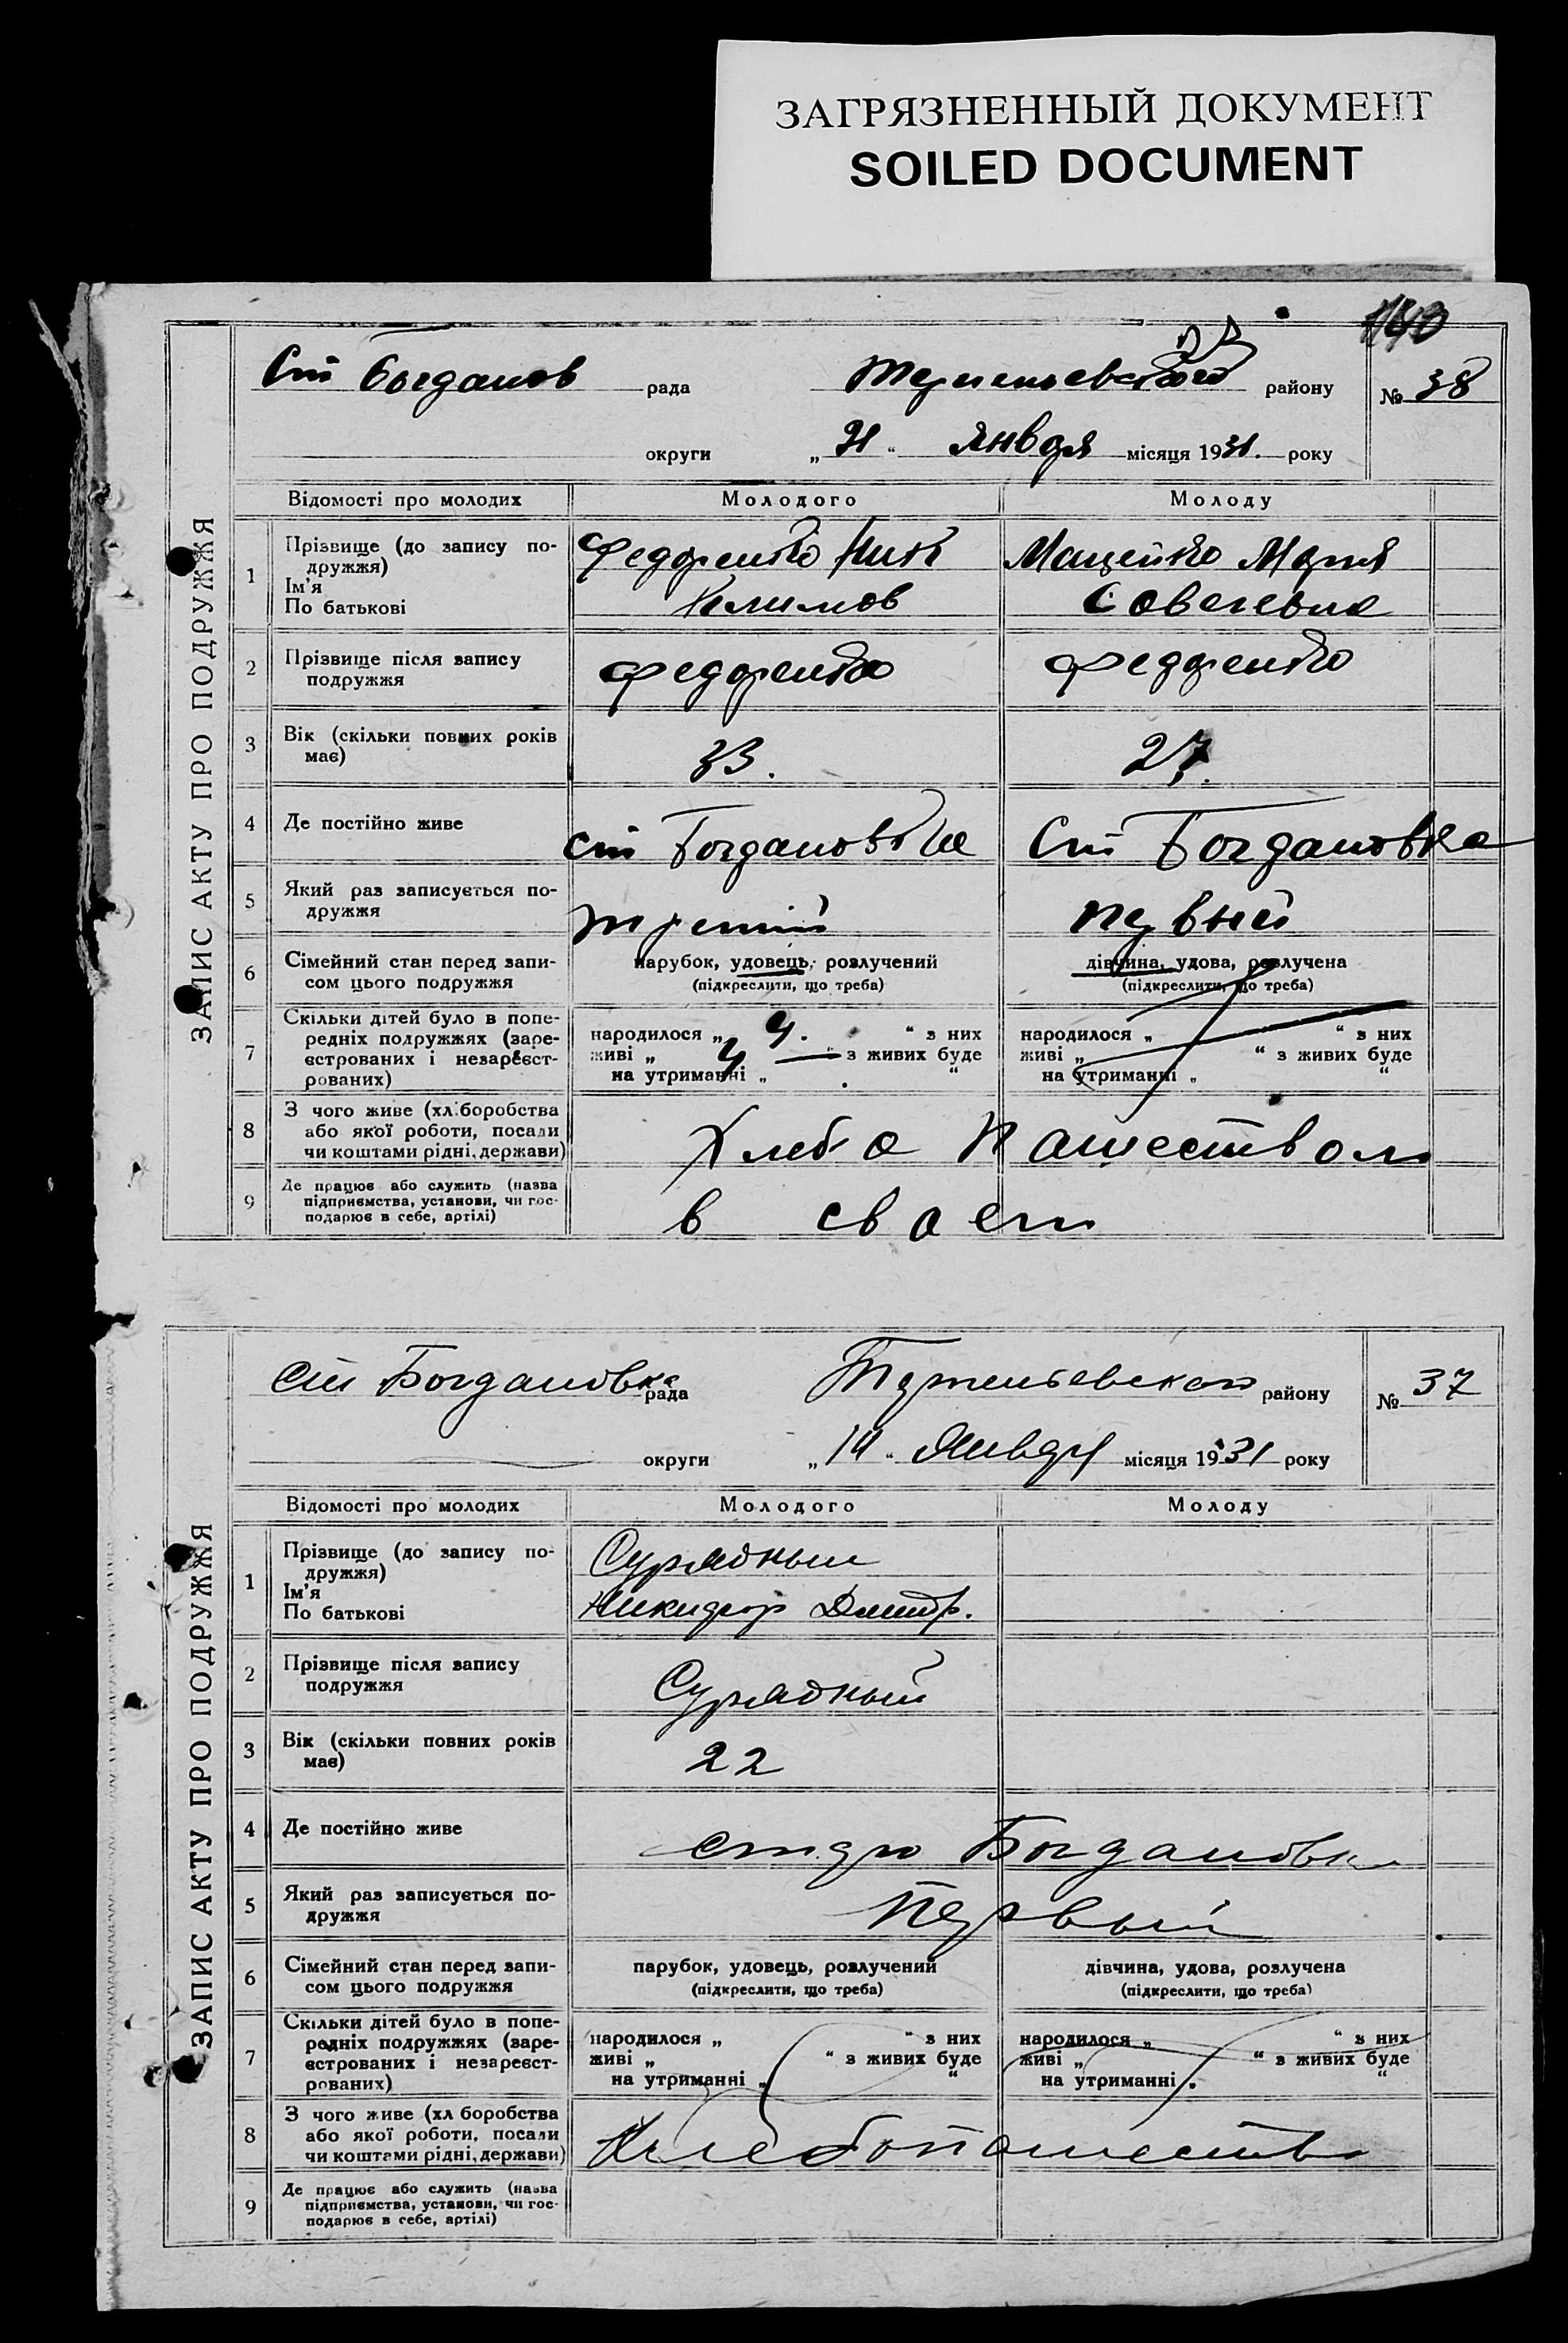 ЗАГРЯЗНЕННЫЙ ДОКУМЕНТ
SOILED DOCUMENT
ЗАПИС АКТУ ПРО ПОДРУЖЖЯ
Ст Богданов рада району № 38
округи „21“ января місяця 1931. року
Відомості про молодих Молодого Молоду
1 Прізвище (до запису по-
дружжя)
Ім'я
По батькові
Федоренко Ник Мацейко Мария
Климов Савельевна
2 Прізвище після запису
подружжя
Федоренко Федоренко
3 Вік (скільки повних років
має)
33. 27.
4 Де постійно живе
ст Богдановка Ст Богдановка
5 Який раз записується по-
дружжя
третий первый
6 Сімейний стан перед запи-
сом цього подружжя
парубок, удовець, розлучений
(підкреслити, що треба)
дівчина, удова, розлучена
(підкреслити, що треба)
7 Скільки дітей було в попе-
редніх подружжях (заре-
єстрованих і незареєст-
рованих)
народилося „ 4. “ з них
живі „ 4 “ з живих буде
на утриманні „ “
народилося „ “ з них
живі „ “ з живих буде
на утриманні „ “
8 З чого живе (хліборобства
або якої роботи, посади
чи коштами рідні, держави)
Хлебопашеством
9 Де працює або служить (назва
підприємства, установи, чи гос-
подарює в себе, артілі)
в своем
ЗАПИС АКТУ ПРО ПОДРУЖЖЯ
Ст Богдановка рада району № 37
округи „14“ Января місяця 1931 року
Відомості про молодих Молодого Молоду
1 Прізвище (до запису по-
дружжя)
Ім'я
По батькові
Сурядный
Никифор Дмитр.
2 Прізвище після запису
подружжя
Сурядный
3 Вік (скільки повних років
має)
22
4 Де постійно живе
Богдановка
5 Який раз записується по-
дружжя
Первый
6 Сімейний стан перед запи-
сом цього подружжя
парубок, удовець, розлучений
(підкреслити, що треба)
дівчина, удова, розлучена
(підкреслити, що треба)
7 Скільки дітей було в попе-
редніх подружжях (заре-
єстрованих і незареєст-
рованих)
народилося „ “ з них
живі „ “ з живих буде
на утриманні „ “
народилося „ “ з них
живі „ “ з живих буде
на утриманні „ “
8 З чого живе (хліборобства
або якої роботи, посади
чи коштами рідні, держави)
Хлебопашество
9 Де працює або служить (назва
підприємства, установи, чи гос-
подарює в себе, артілі)